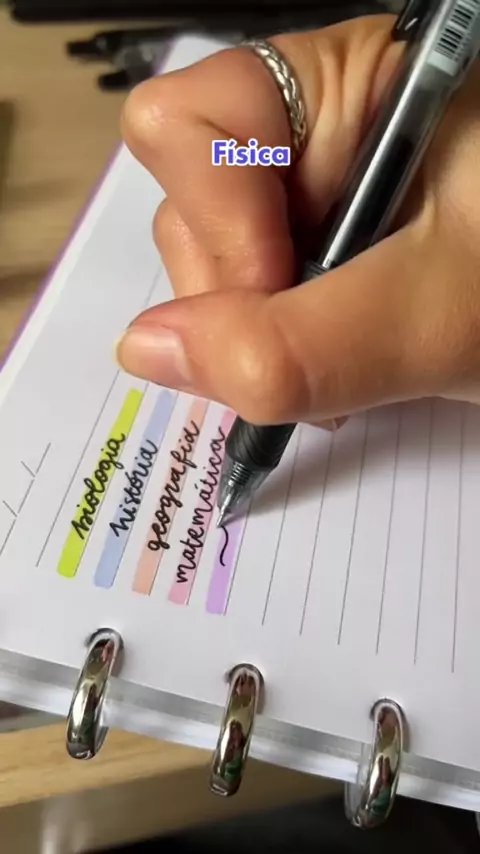 Física
biologia
história
geografia
matemática